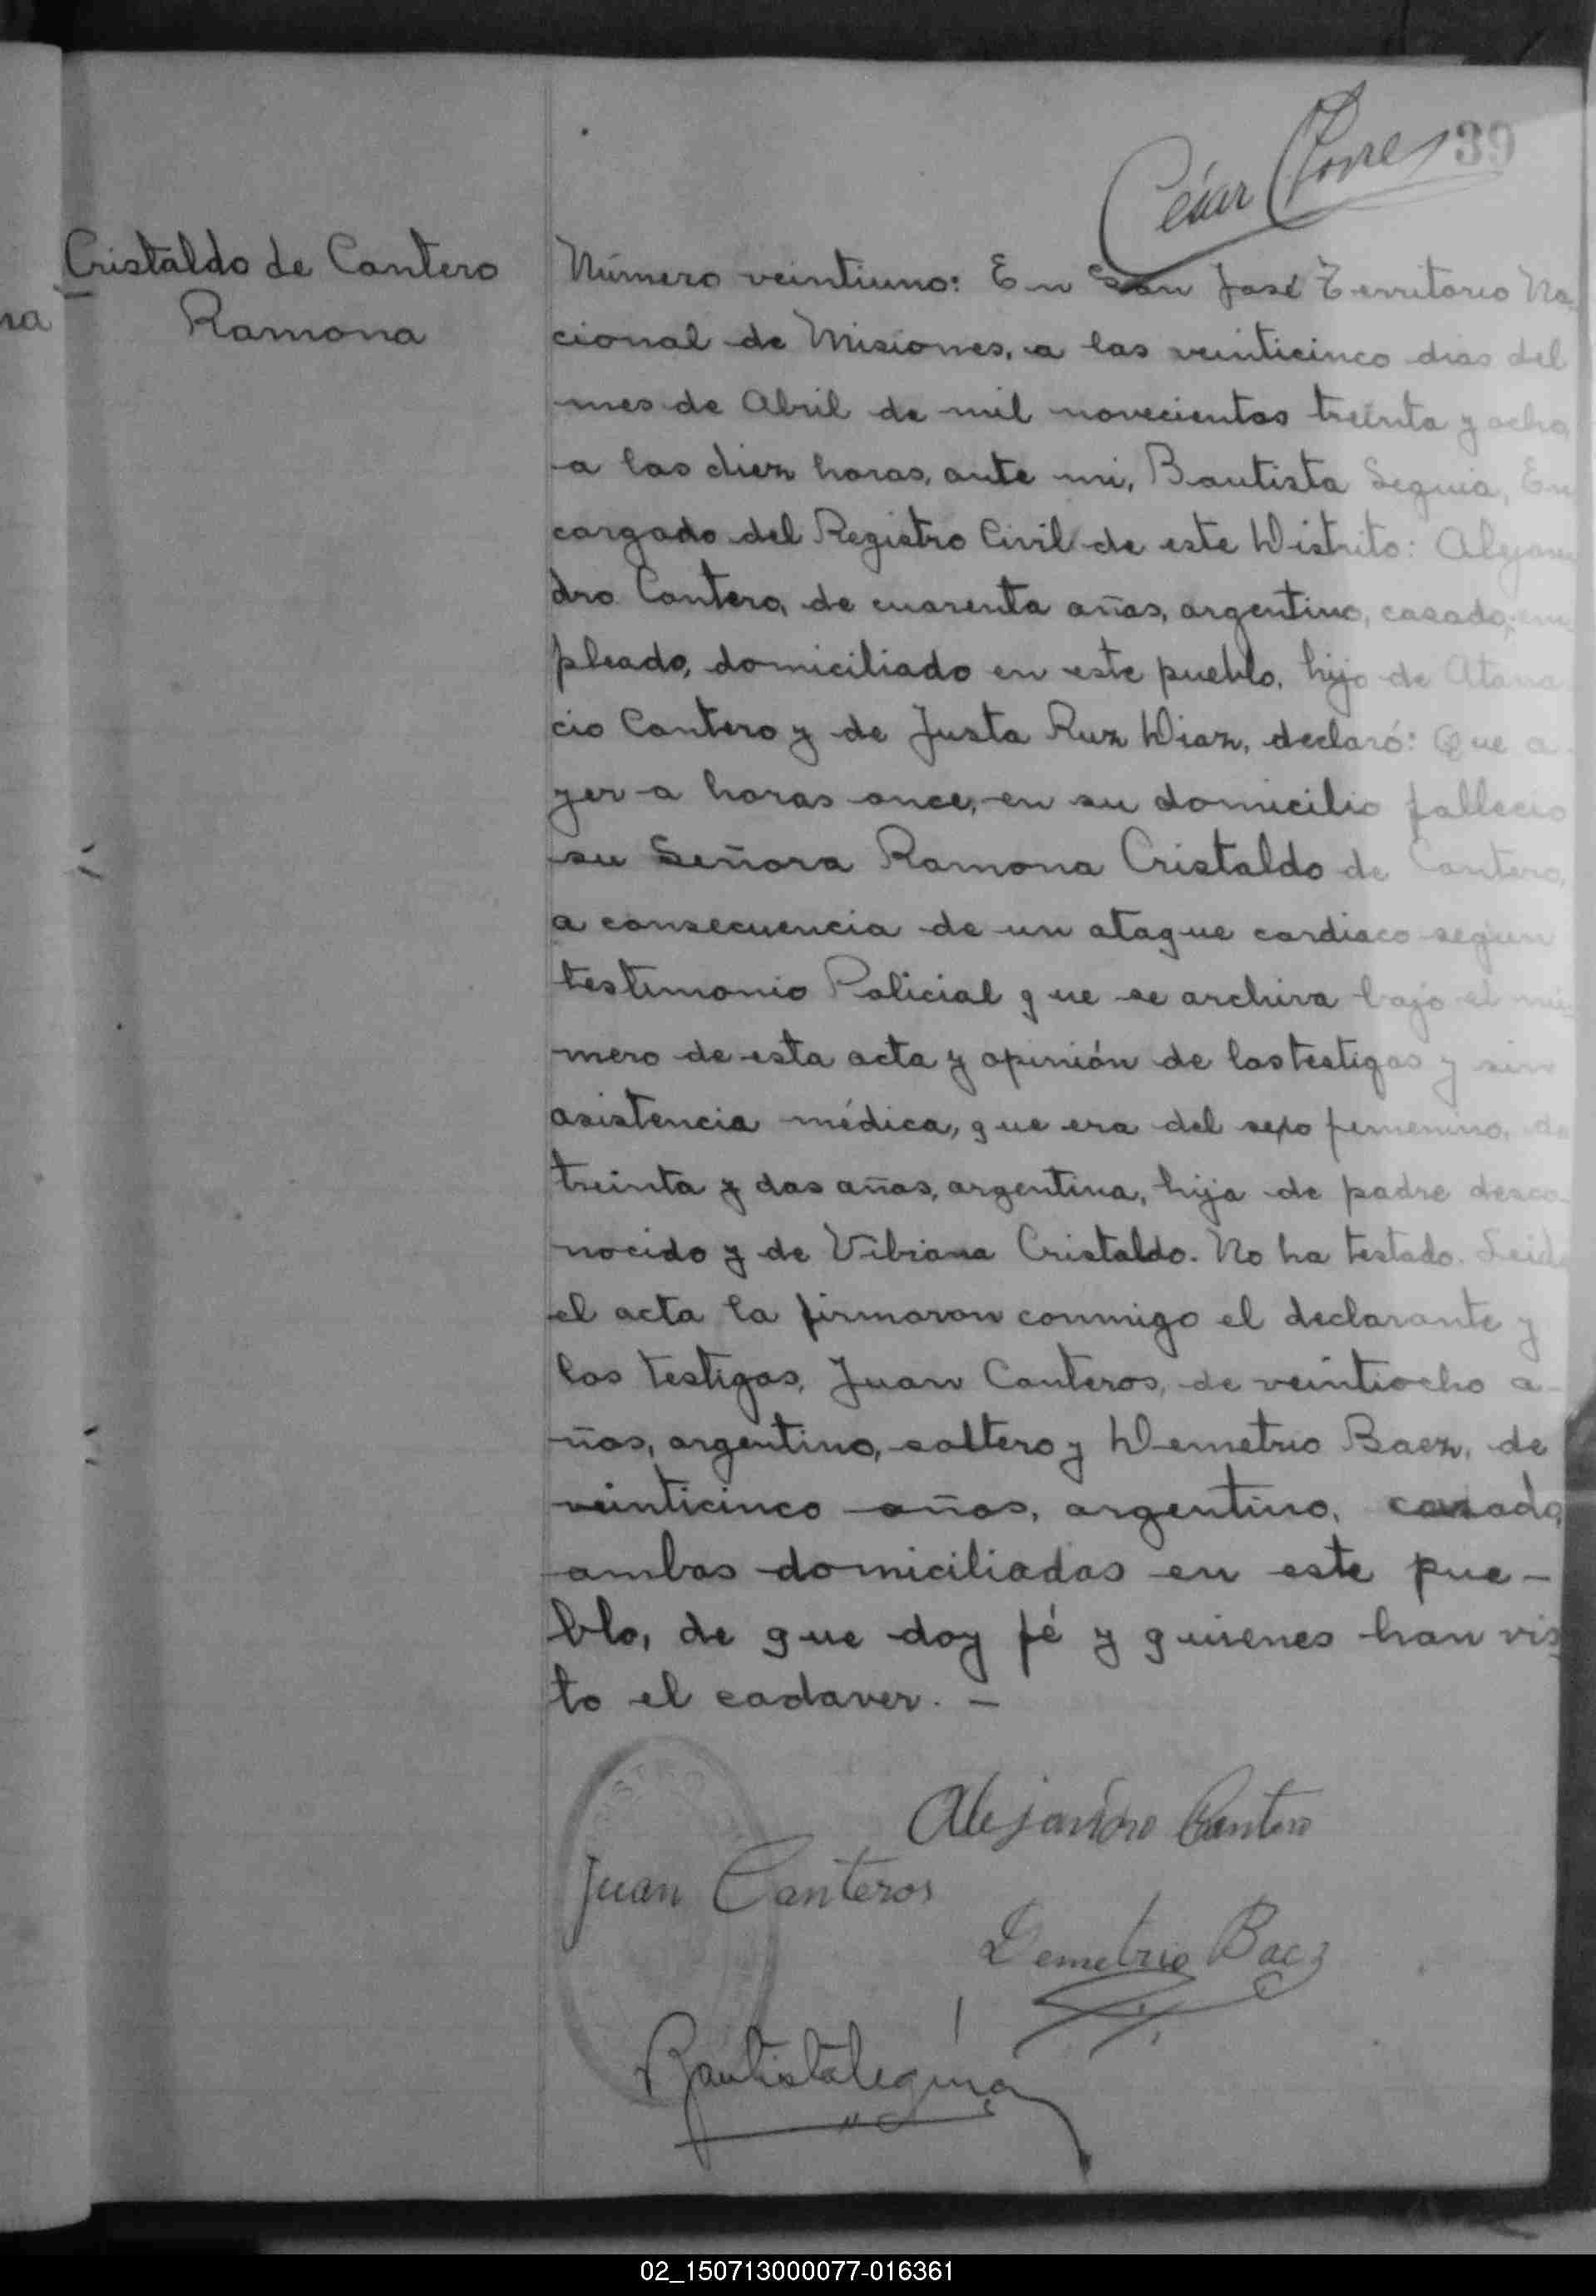 César Torres 39
Cristaldo de Cantero
Ramona
na
Número veintiuno: En San José Territorio Na-
cional de Misiones, a los veinticinco dias del
mes de Abril de mil novecientos treinta y ocho
a las diez horas, ante mi, Bautista Seguia, En
cargado del Registro Civil de este Distrito: Alejan
dro Cantero, de cuarenta años, argentino, casado, em
pleado, domiciliado en este pueblo, hijo de Atana
cio Cantero y de Justa Ruz Diaz, declaró: Que a-
yer a horas once, en su domicilio fallecio
su Señora Ramona Cristaldo de Cantero,
a consecuencia de un ataque cardiaco segun
testimonio Policial que se archiva bajo el nú
mero de esta acta y opinión de los testigos y sin
asistencia médica, que era del sexo femenino, de
treinta y dos años, argentina, hija de padre desco-
nocido y de Vibiana Cristaldo. No ha testado. Leida
el acta la firmaron conmigo el declarante y
los testigos, Juan Canteros, de veintiocho a-
ños, argentino, soltero y Demetrio Baez, de
veinticinco años, argentino, casado,
ambos domiciliados en este pue-
blo, de que doy fé y quienes han vis
to el cadaver. —
Alejandro Cantero
Juan Canteros
Demetrio Baez
Bautista Seguia
02_150713000077-016361